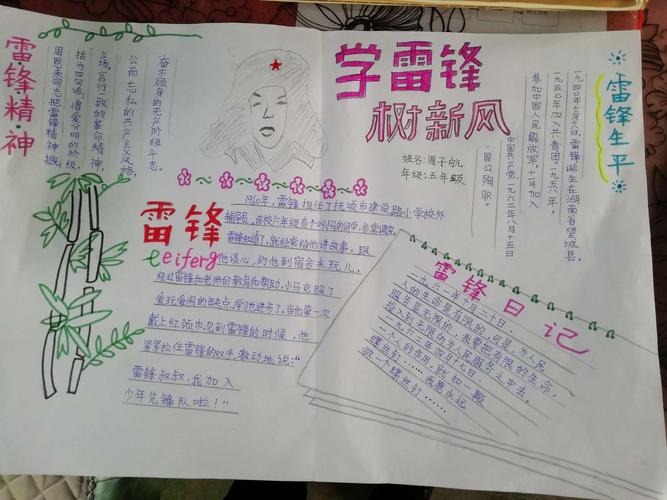 学雷锋
树新风
姓名：周子航
年级：五年级
雷锋精神
周恩来同志把雷锋精神概
括为四句话：憎爱分明的阶级
立场，言行一致的革命精神，
公而忘私的共产主义风格，
奋不顾身的无产阶级斗志。
雷锋生平
一九四〇年十二月十八日，雷锋诞生在湖南省望城县，
一九五七年加入共青团，一九五八年，
参加中国人民解放军，十一月加入
中国共产党，一九六二年八月十五日
因公殉职。
雷锋
Leifeng
1960年，雷锋担任了抚顺市建设路小学校外
辅导员。该校六年级有个叫小马的同学，非常调皮。
雷锋知道了，就经常给他讲故事，跟
他谈心，约他到宿舍来玩儿，
经过雷锋和老师的教育和帮助，小马克服了
爱玩爱闹的缺点，学习进步了。当他第一次
戴上红领巾，见到雷锋的时候，他
紧紧拉住雷锋的双手，激动地说：“
雷锋叔叔，我加入
少年先锋队啦！”
雷锋日记
一九六一年十月二十日，
人的生命是有限的，可是，为人民
服务是无限的，我要把有限的生命，
投入到无限的为人民服务之中去。
一九六二年四月十七日
一个人的作用，就如一颗
螺丝钉……我愿永远
做一个螺丝钉……